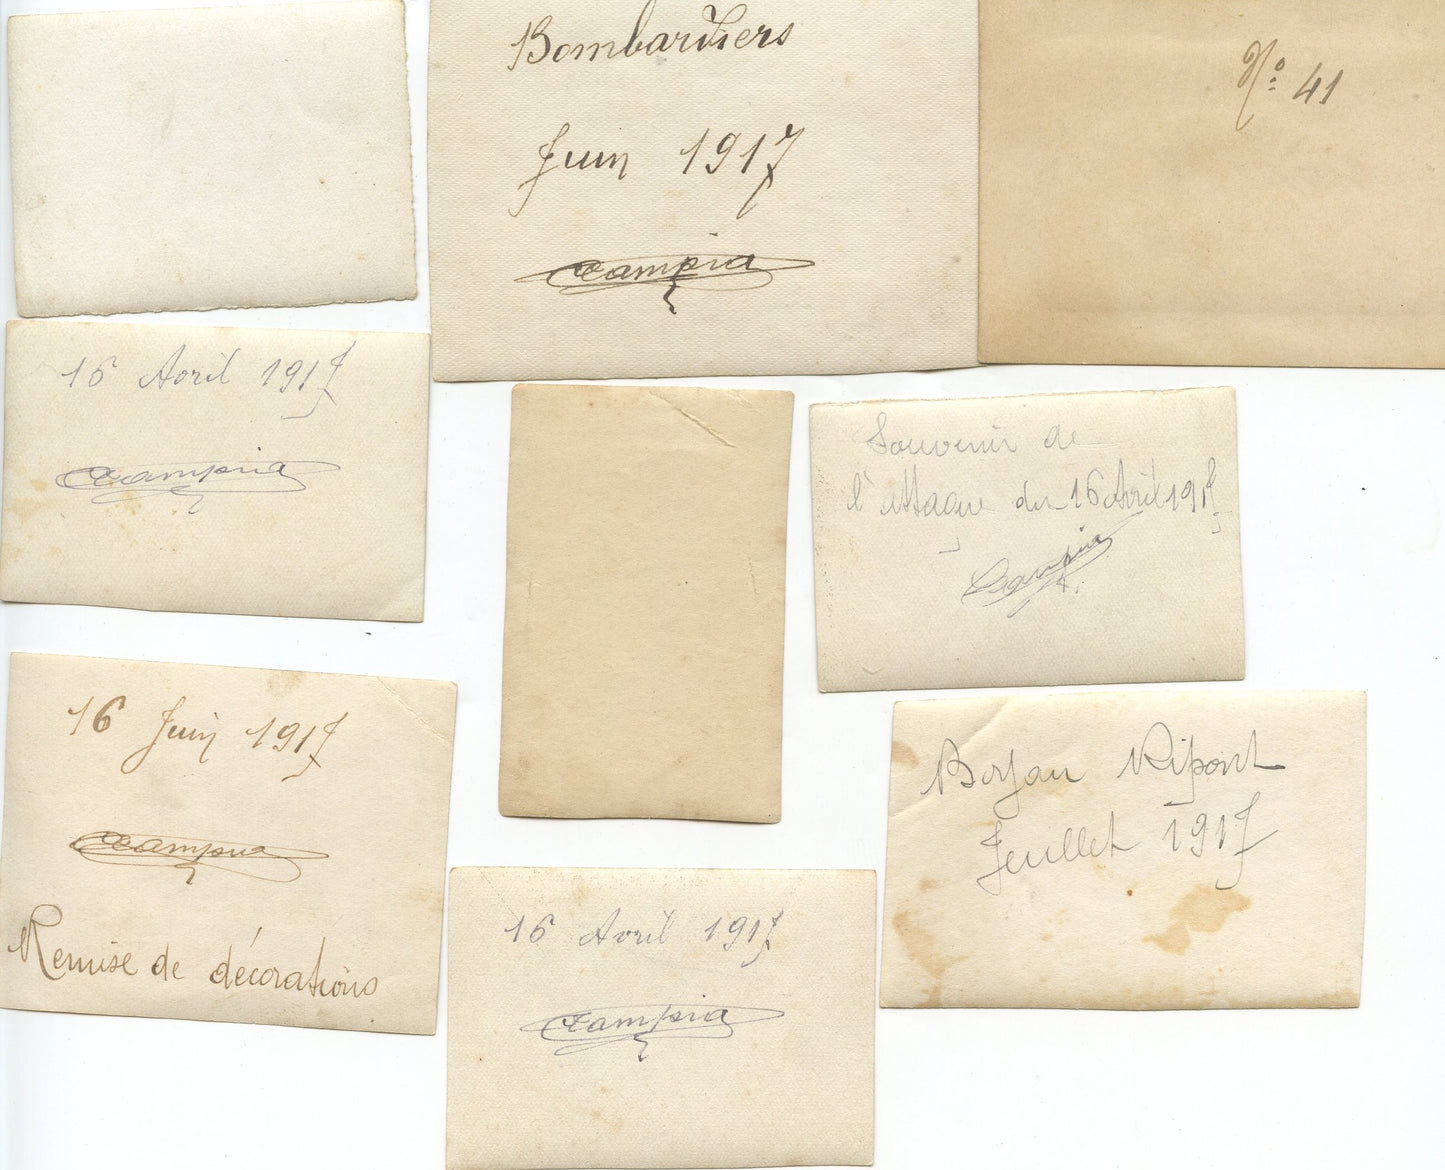 Bombardiers
Juin 1917
Campia
N° 41
16 Avril 1917
Campia
Souvenir de
l'attaque du 16 Avril 1917
Campia
16 Juin 1917
Campia
Remise de décorations
Ripont
Juillet 1917
16 Avril 1917
Campia